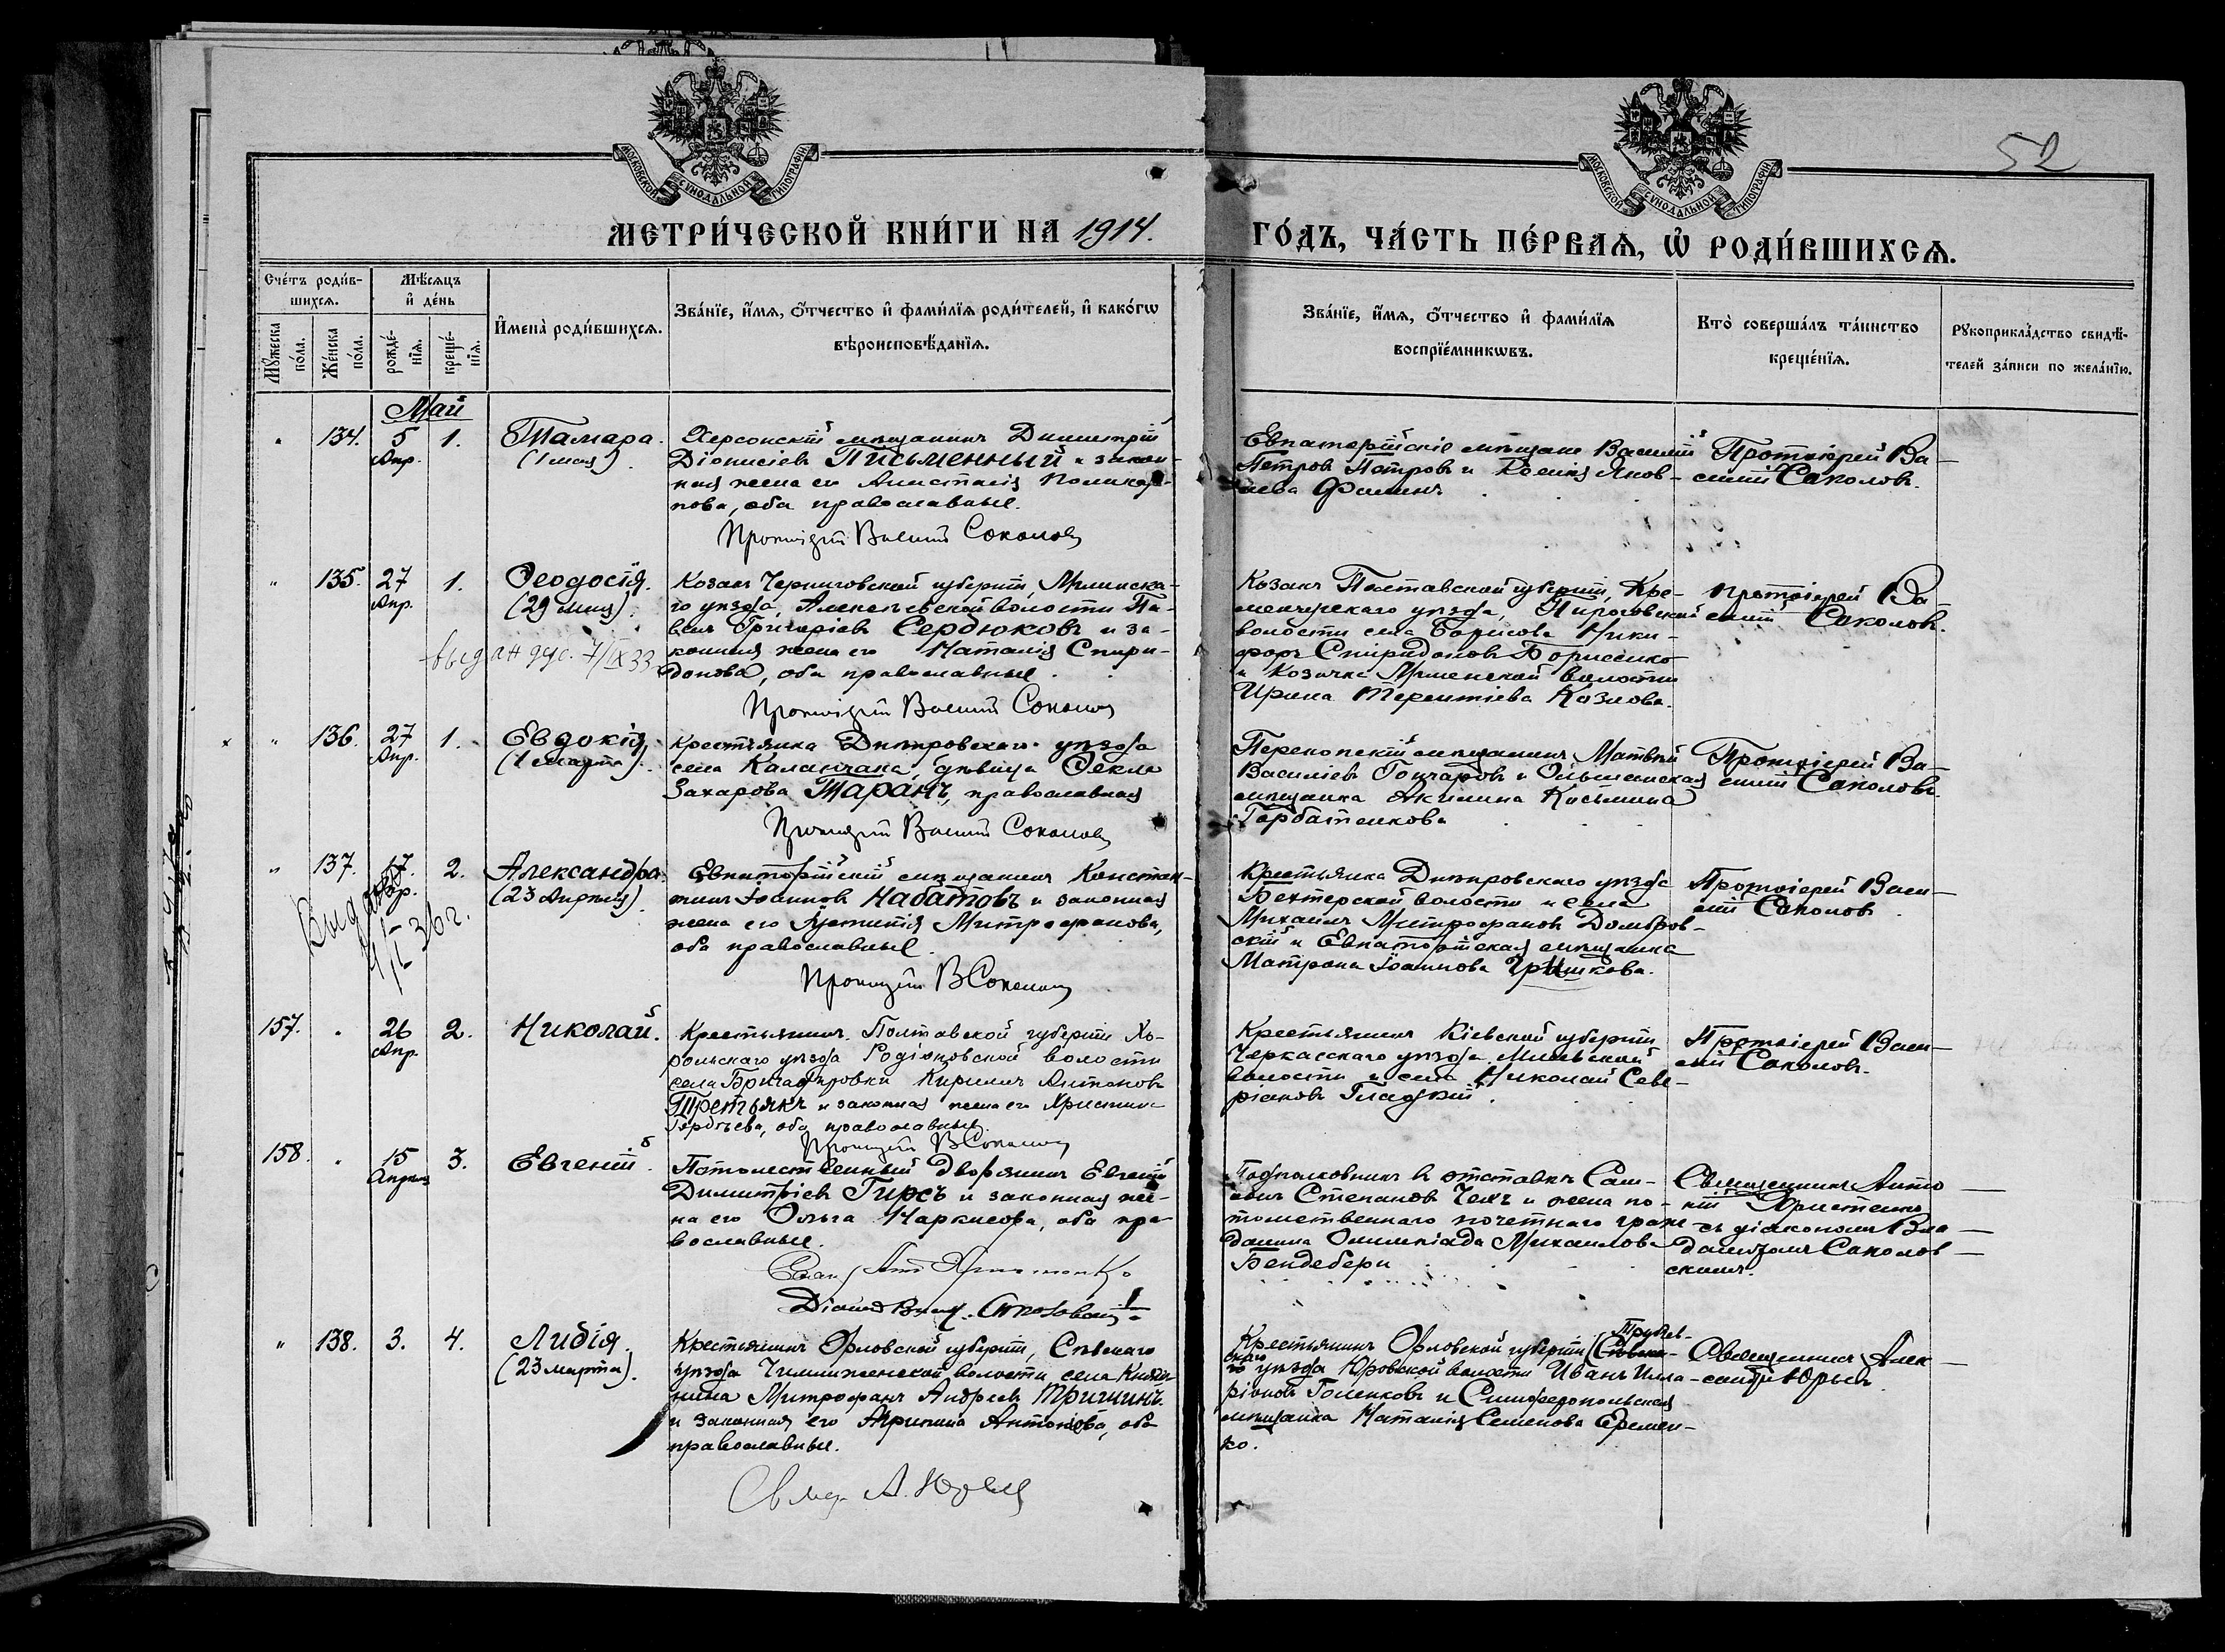 МОСКОВСКОЙ СѴНОДАЛЬНОЙ ТИПОГРАФІИ
МОСКОВСКОЙ СѴНОДАЛЬНОЙ ТИПОГРАФІИ
52
МЕТРИ́ЧЕСКОЙ КНИ́ГИ НА 1914.
ГО́ДЪ, ЧА́СТЬ ПЕ́РВАѦ, Ѡ҆ РОДИ́ВШИХСѦ.
Сче́тъ роди́в-
шихсѧ.
Мꙋ́жеска по́ла.
Же́нска по́ла.
Мѣ́сѧцъ
и҆ де́нь
рожде́-
нїѧ.
креще́-
нїѧ.
И҆мена̀ роди́вшихсѧ.
Зва́нїе, и҆́мѧ, ѻ҆́тчество и҆ фами́лїѧ роди́телей, и҆ како́гѡ
вѣроисповѣ́данїѧ.
Зва́нїе, и҆́мѧ, ѻ҆́тчество и҆ фами́лїѧ
воспрїе́мникѡвъ.
Кто̀ соверша́лъ та́инство
креще́нїѧ.
Рꙋкоприкла́дство свидѣ́-
телей за́писи по жела́нїю.
Май
" 134. 5 Апр. 1.
Тамара.
(1 мая).
Херсонскій мѣщанинъ Димитрій
Діонисіевъ Письменный и закон-
ная жена его Анастасія Поликар-
пова, оба православные.
Протоіерей Василій Соколовъ
Евпаторійскіе мѣщане Василій
Петровъ Петровъ и Ксенія Яков-
лева
Протоіерей Ва-
силій Соколовъ.
" 135. 27 Апр. 1.
Ѳеодосія.
(29 мая).
выдан дус. 7/IX 33
Козакъ Черниговской губерніи, Мглинска-
го уѣзда, Алексѣевской волости Па-
велъ Григоріевъ Сердюковъ и за-
конная жена его Наталія Спири-
донова, оба православные.
Протоіерей Василій Соколовъ
Козакъ Полтавской губерніи, Кре-
менчугскаго уѣзда, Пироговской
волости села Борисова Ники-
форъ Спиридоновъ Борисенко
и козачка волости
Ирина Терентіева Козлова.
Протоіерей Ва-
силій Соколовъ.
" 136. 27 Апр. 1.
Евдокія.
(1 марта).
Крестьянка Днѣпровскаго уѣзда
села Каланчака, дѣвица Ѳекла
Захарова Таранъ, православная
Протоіерей Василій Соколовъ
Перекопскій мѣщанинъ Матвѣй
Василіевъ Гончаровъ и
мѣщанка Акилина Косьмина
Горбатенкова
Протоіерей Ва-
силій Соколовъ.
" 137. 17. Апр. 2.
Александра.
(23 Апрѣля).
Выдано
36 г.
Евпаторійскій мѣщанинъ Констан-
тинъ Іоанновъ Набатовъ и законная
жена его Іустинія Митрофанова,
оба православные.
Протоіерей В Соколовъ
Крестьянка Днѣпровскаго уѣзда
Бехтерской волости и села
Михаилъ Митрофановъ Домбров-
скій и Евпаторійская мѣщанка
Матрона Іоаннова Гришкова.
Протоіерей Васи-
лій Соколовъ.
157. " 26 Апр. 2.
Николай.
Крестьянинъ Полтавской губерніи Хо-
рольскаго уѣзда Родіоновской волости
села Бригадировки Кириллъ Антоновъ
Третьякъ и законная жена его Христина
Гордѣева, оба православные.
Протоіерей В Соколовъ
Крестьянинъ Кіевской губерніи
Черкасскаго уѣзда, Мліевской
волости и села Николай Севе-
ріановъ Гладкій.
Протоіерей Васи-
лій Соколовъ.
158. " 15 Апрѣля 3.
Евгеній.
Потомственный дворянинъ Евгеній
Димитріевъ Гирсъ и законная же-
на его Ольга Наркисова, оба пра-
вославные.
Подполковникъ въ отставкѣ Сам-
Степановъ и жена по-
томственнаго почетнаго граж-
данина Олимпіада Михаилова
Бендебери
Священникъ Анто-
ній Христенко
съ діакономъ Вла-
диміромъ Соколов-
скимъ.
" 138. 3. 4.
Лидія.
(23 марта).
Крестьянинъ Орловской губерніи, Сѣвскаго
уѣзда волости села Княги-
нина Митрофанъ Андреевъ Тришинъ
и законная его Агрипина Антонова, оба
православные.
Свящ. А. Юрьевъ
Крестьянинъ Орловской губерніи Трубчев-
скаго уѣзда Юровской волости Иванъ Илла-
ріоновъ Голенковъ и Симферопольская
мѣщанка Наталія Семенова Еремен-
ко.
Священникъ Алек-
сандръ Юрьевъ.